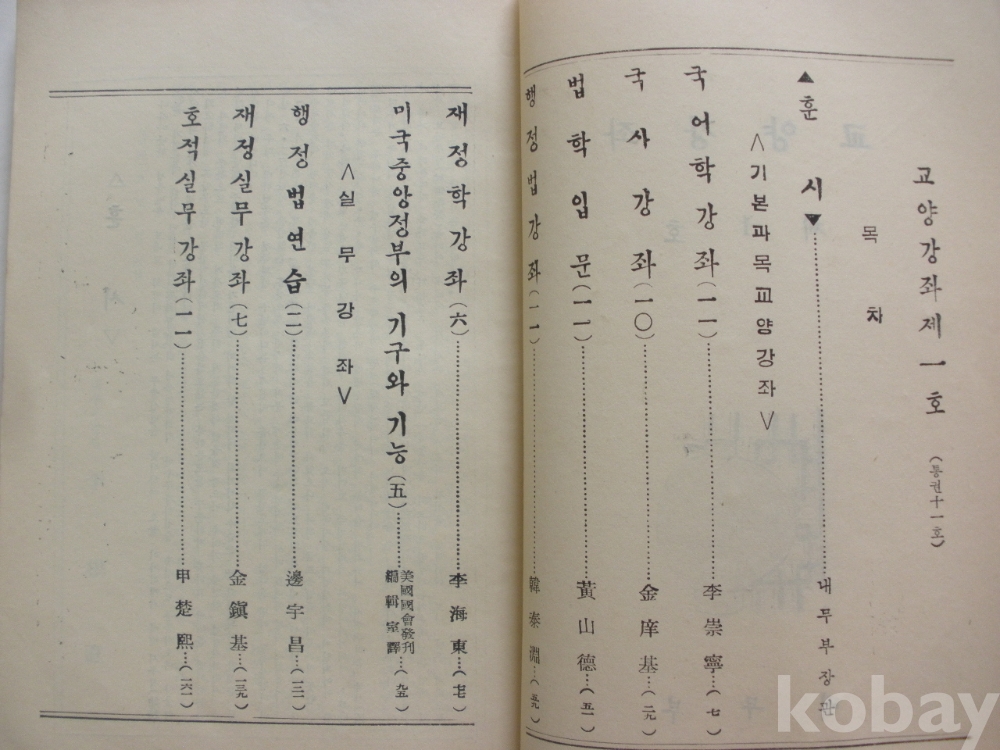 교양강좌제一호 (통권十一호)
목차
▲훈시▼……내무부장관
<기본과목교양강좌>
국어학강좌(一一)……李崇寧…(七)
국사강좌(一〇)……金庠基…(二九)
법학입문(一一)……黃山德…(五一)
행정법강좌(一一)……韓泰淵…
재정학강좌(六)……李海東…
미국중앙정부의 기구와 기능(五)……美國國會發刊 編輯室譯…(九五)
<실무강좌>
행정법연습(二)……邊宇昌…(一三一)
재정실무강좌(七)……金鎭基…(一三九)
호적실무강좌(一一)……申楚熙…(一六一)
kobay